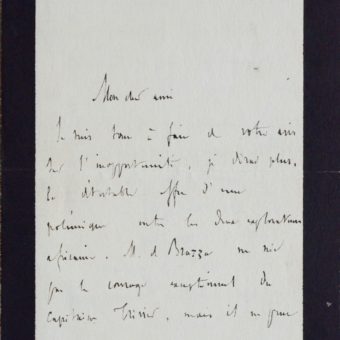 Mon cher ami
Je suis tout à fait de votre avis
sur l'inopportunité, je dirai plus,
le détestable effet d'une
polémique entre les deux explorateurs
africains. M. de Brazza ne nie
pas le courage exceptionnel du
Capitaine, mais il ne peut